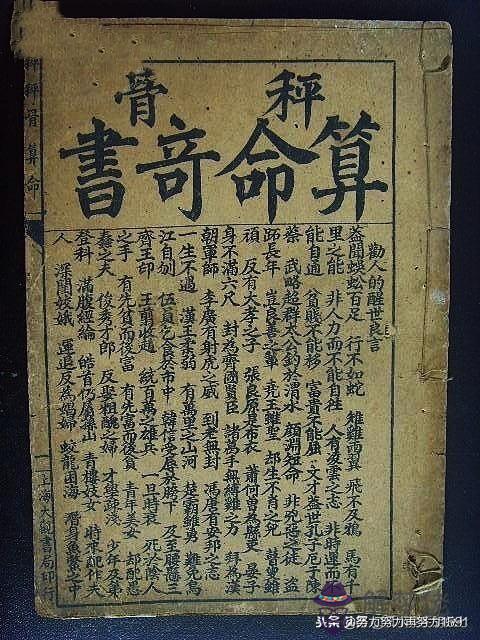 秤骨
算命奇書
勸人的醒世良言
蓋聞蜈蚣百足 行不如蛇 雄雞兩翼 飛不及鴉 馬有千
里之能 非人力而不能自往 人有凌雲之志 非時運而不
能自通 貧賤不能移 富貴不能屈 文才蓋世孔子厄于陳
蔡 武略超群太公釣於渭水 顏淵短命 非兇惡之徒 盜
跖長年 豈良善之輩 堯王雖聖 却生不肖之兒 瞽叟雖
頑 反有大孝之子 張良原是布衣 蕭何曾為縣吏 晏子
身不滿六尺 封為齊國賢臣 諸葛手無縛雞之力 拜為漢
朝軍師 李廣有射虎之威 到老無封 馮唐有安邦之志
一生不遇 漢王柔弱 有萬里之山河 楚霸雖勇 難免烏
江自刎 伍員乞食於市中 韓信受辱於胯下 及至腰懸三
齊王印 王翦收趙 統百萬之雄兵 一旦時衰 死於陰人
之手 有先貧而後富 有先富而後貧 青年美女 却配愚
蠢之夫 俊秀才郎 反娶粗醜之婦 才學淺 少年及第
登科 滿腹經綸 皓首仍居深山 青樓妓女 時來配作夫
人 深閨嬌娥 運退反為娼婦 蛟龍困海 潛身魚鱉之中
秤骨算命
上海大觀書局印行
头条@努力努力再努力1591